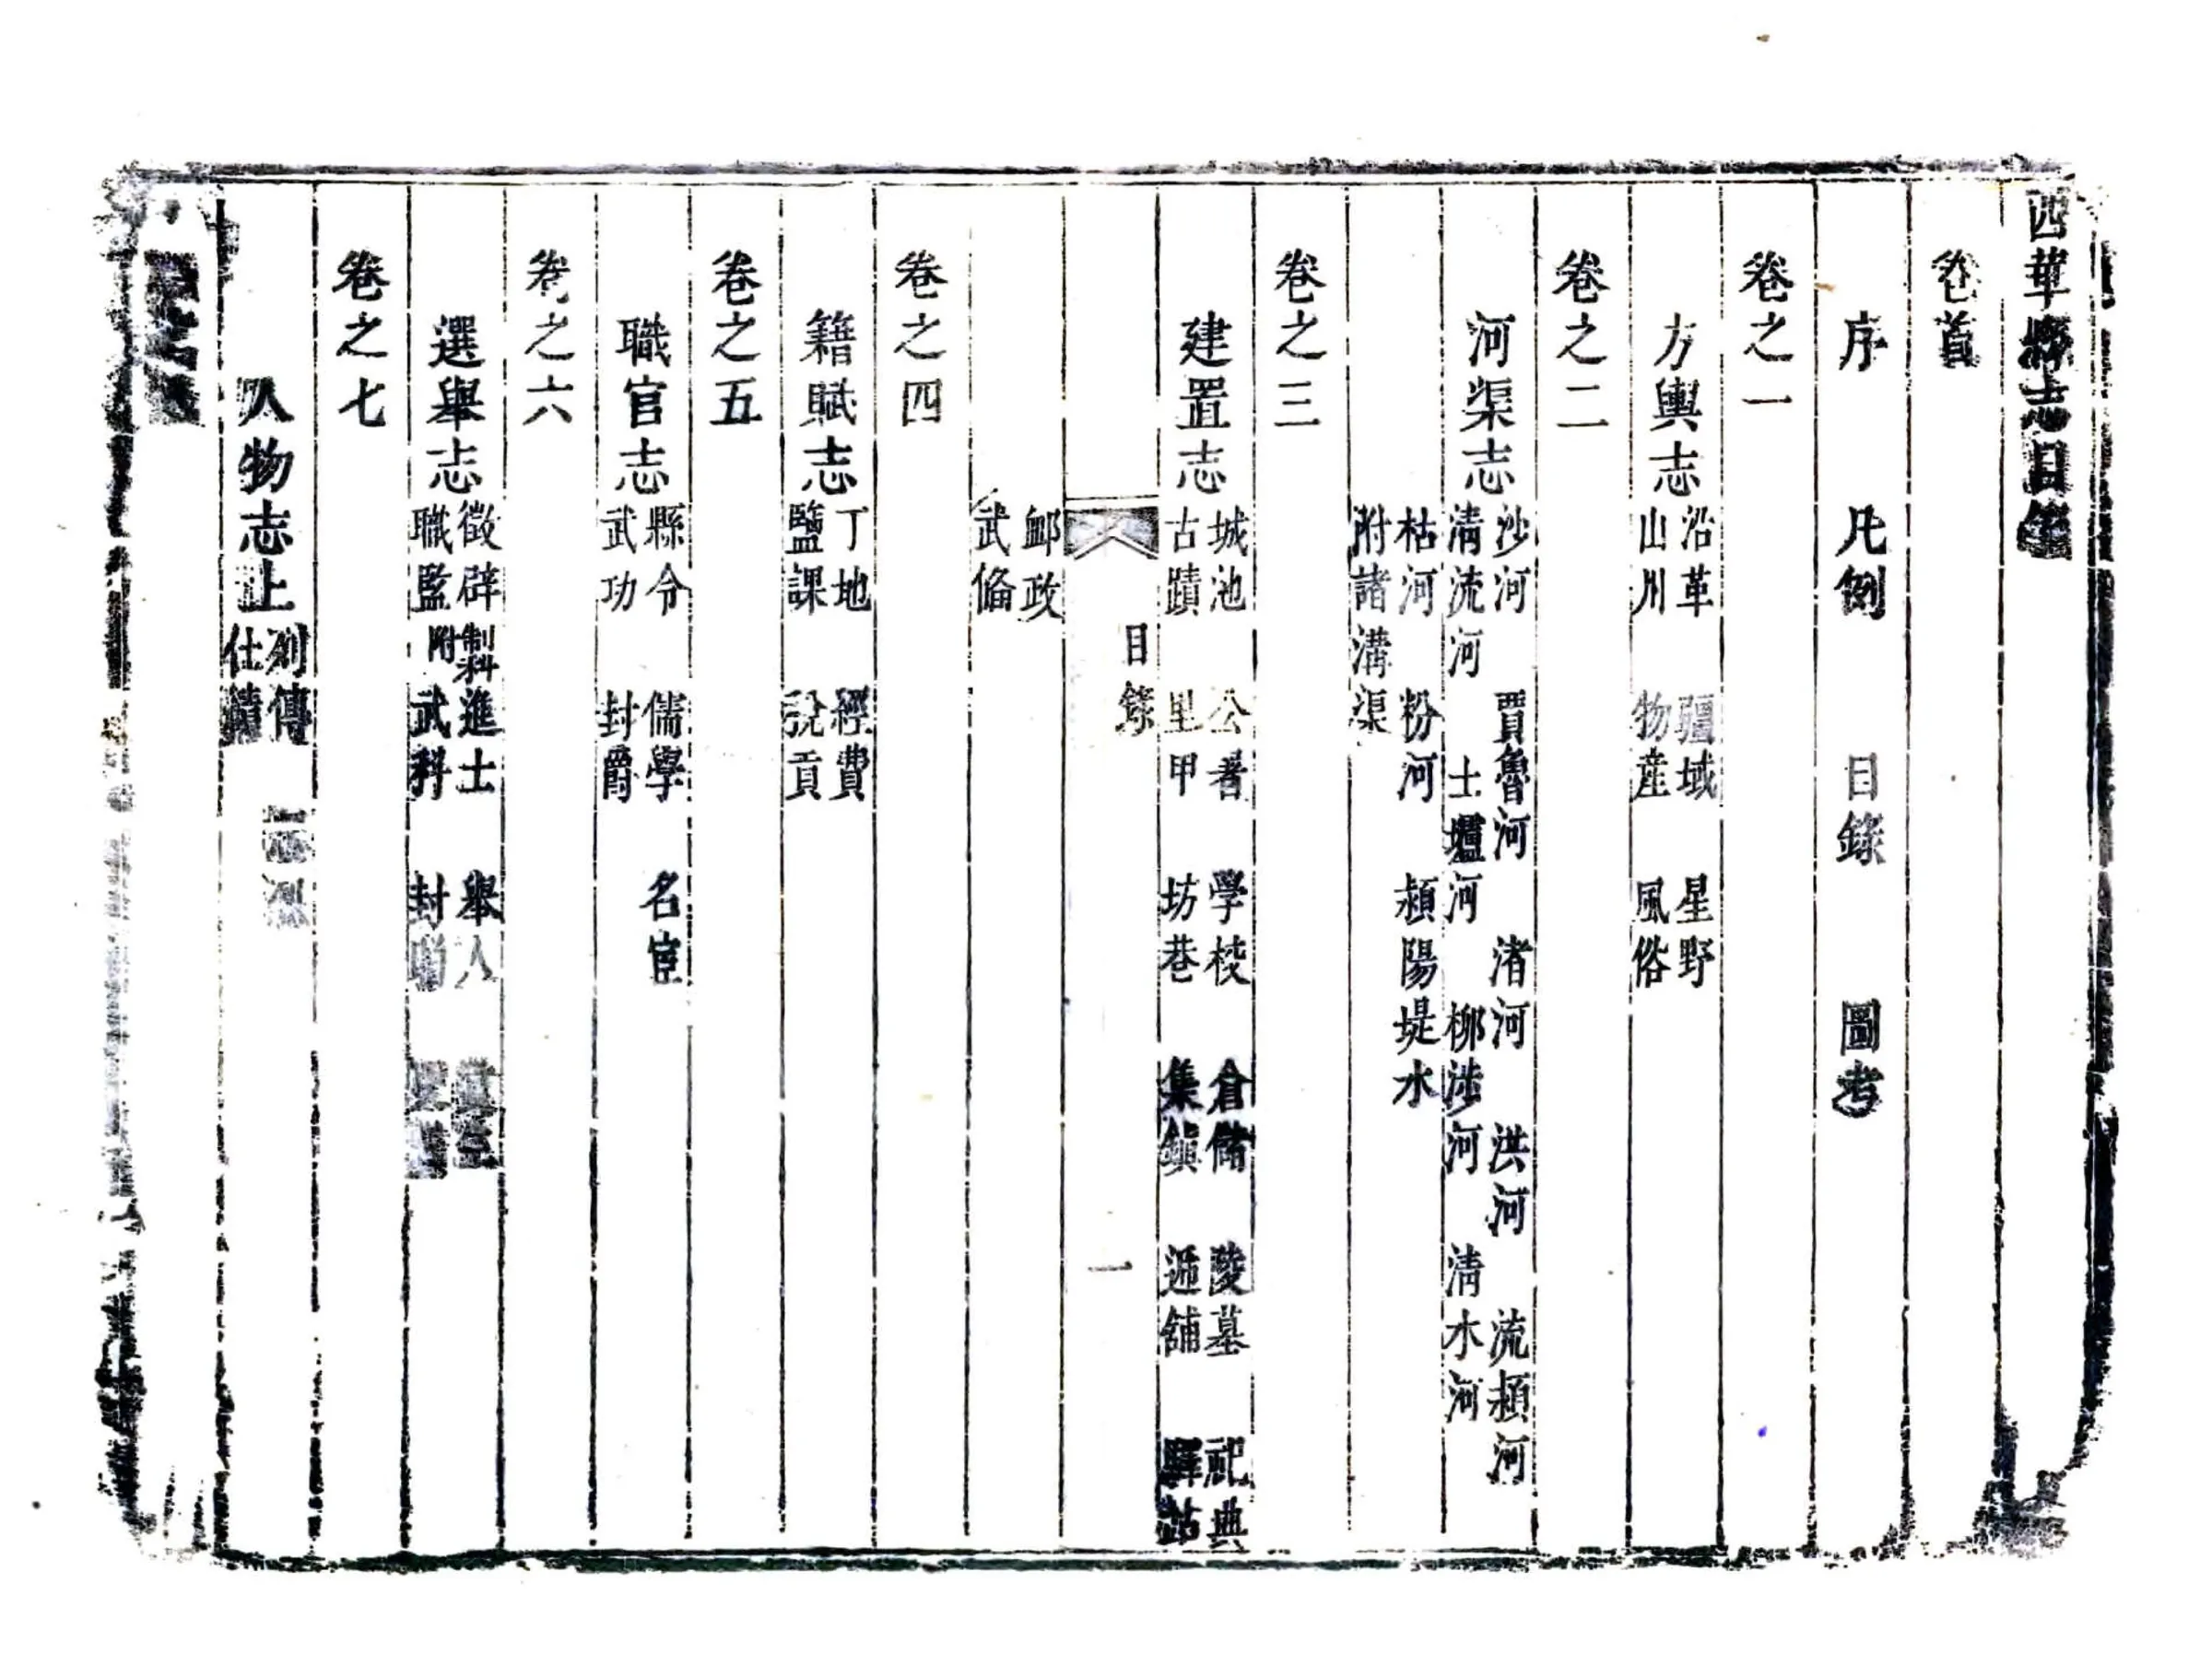 西華縣志目錄
卷首
序 凡例 目錄 圖考
卷之一
方輿志 沿革 疆域 星野
山川 物産 風俗
卷之二
河渠志 沙河 賈魯河 渚河 洪河 流潁河
清流河 土壚河 柳涉河 清水河
枯河 粉河 潁陽堤水
附諸溝渠
卷之三
建置志 城池 公署 學校 倉儲 陵墓 祀典
古蹟 里甲 坊巷 集鎮 逓舖 驛站
目錄 一
郵政
武俻
卷之四
籍賦志 丁地 經費
鹽課 稅貢
卷之五
職官志 縣令 儒學 名宦
武功 封爵
卷之六
選舉志 徵辟 制科 進士 舉人
職監 附 武科 封
卷之七
人物志上 列傳
仕績